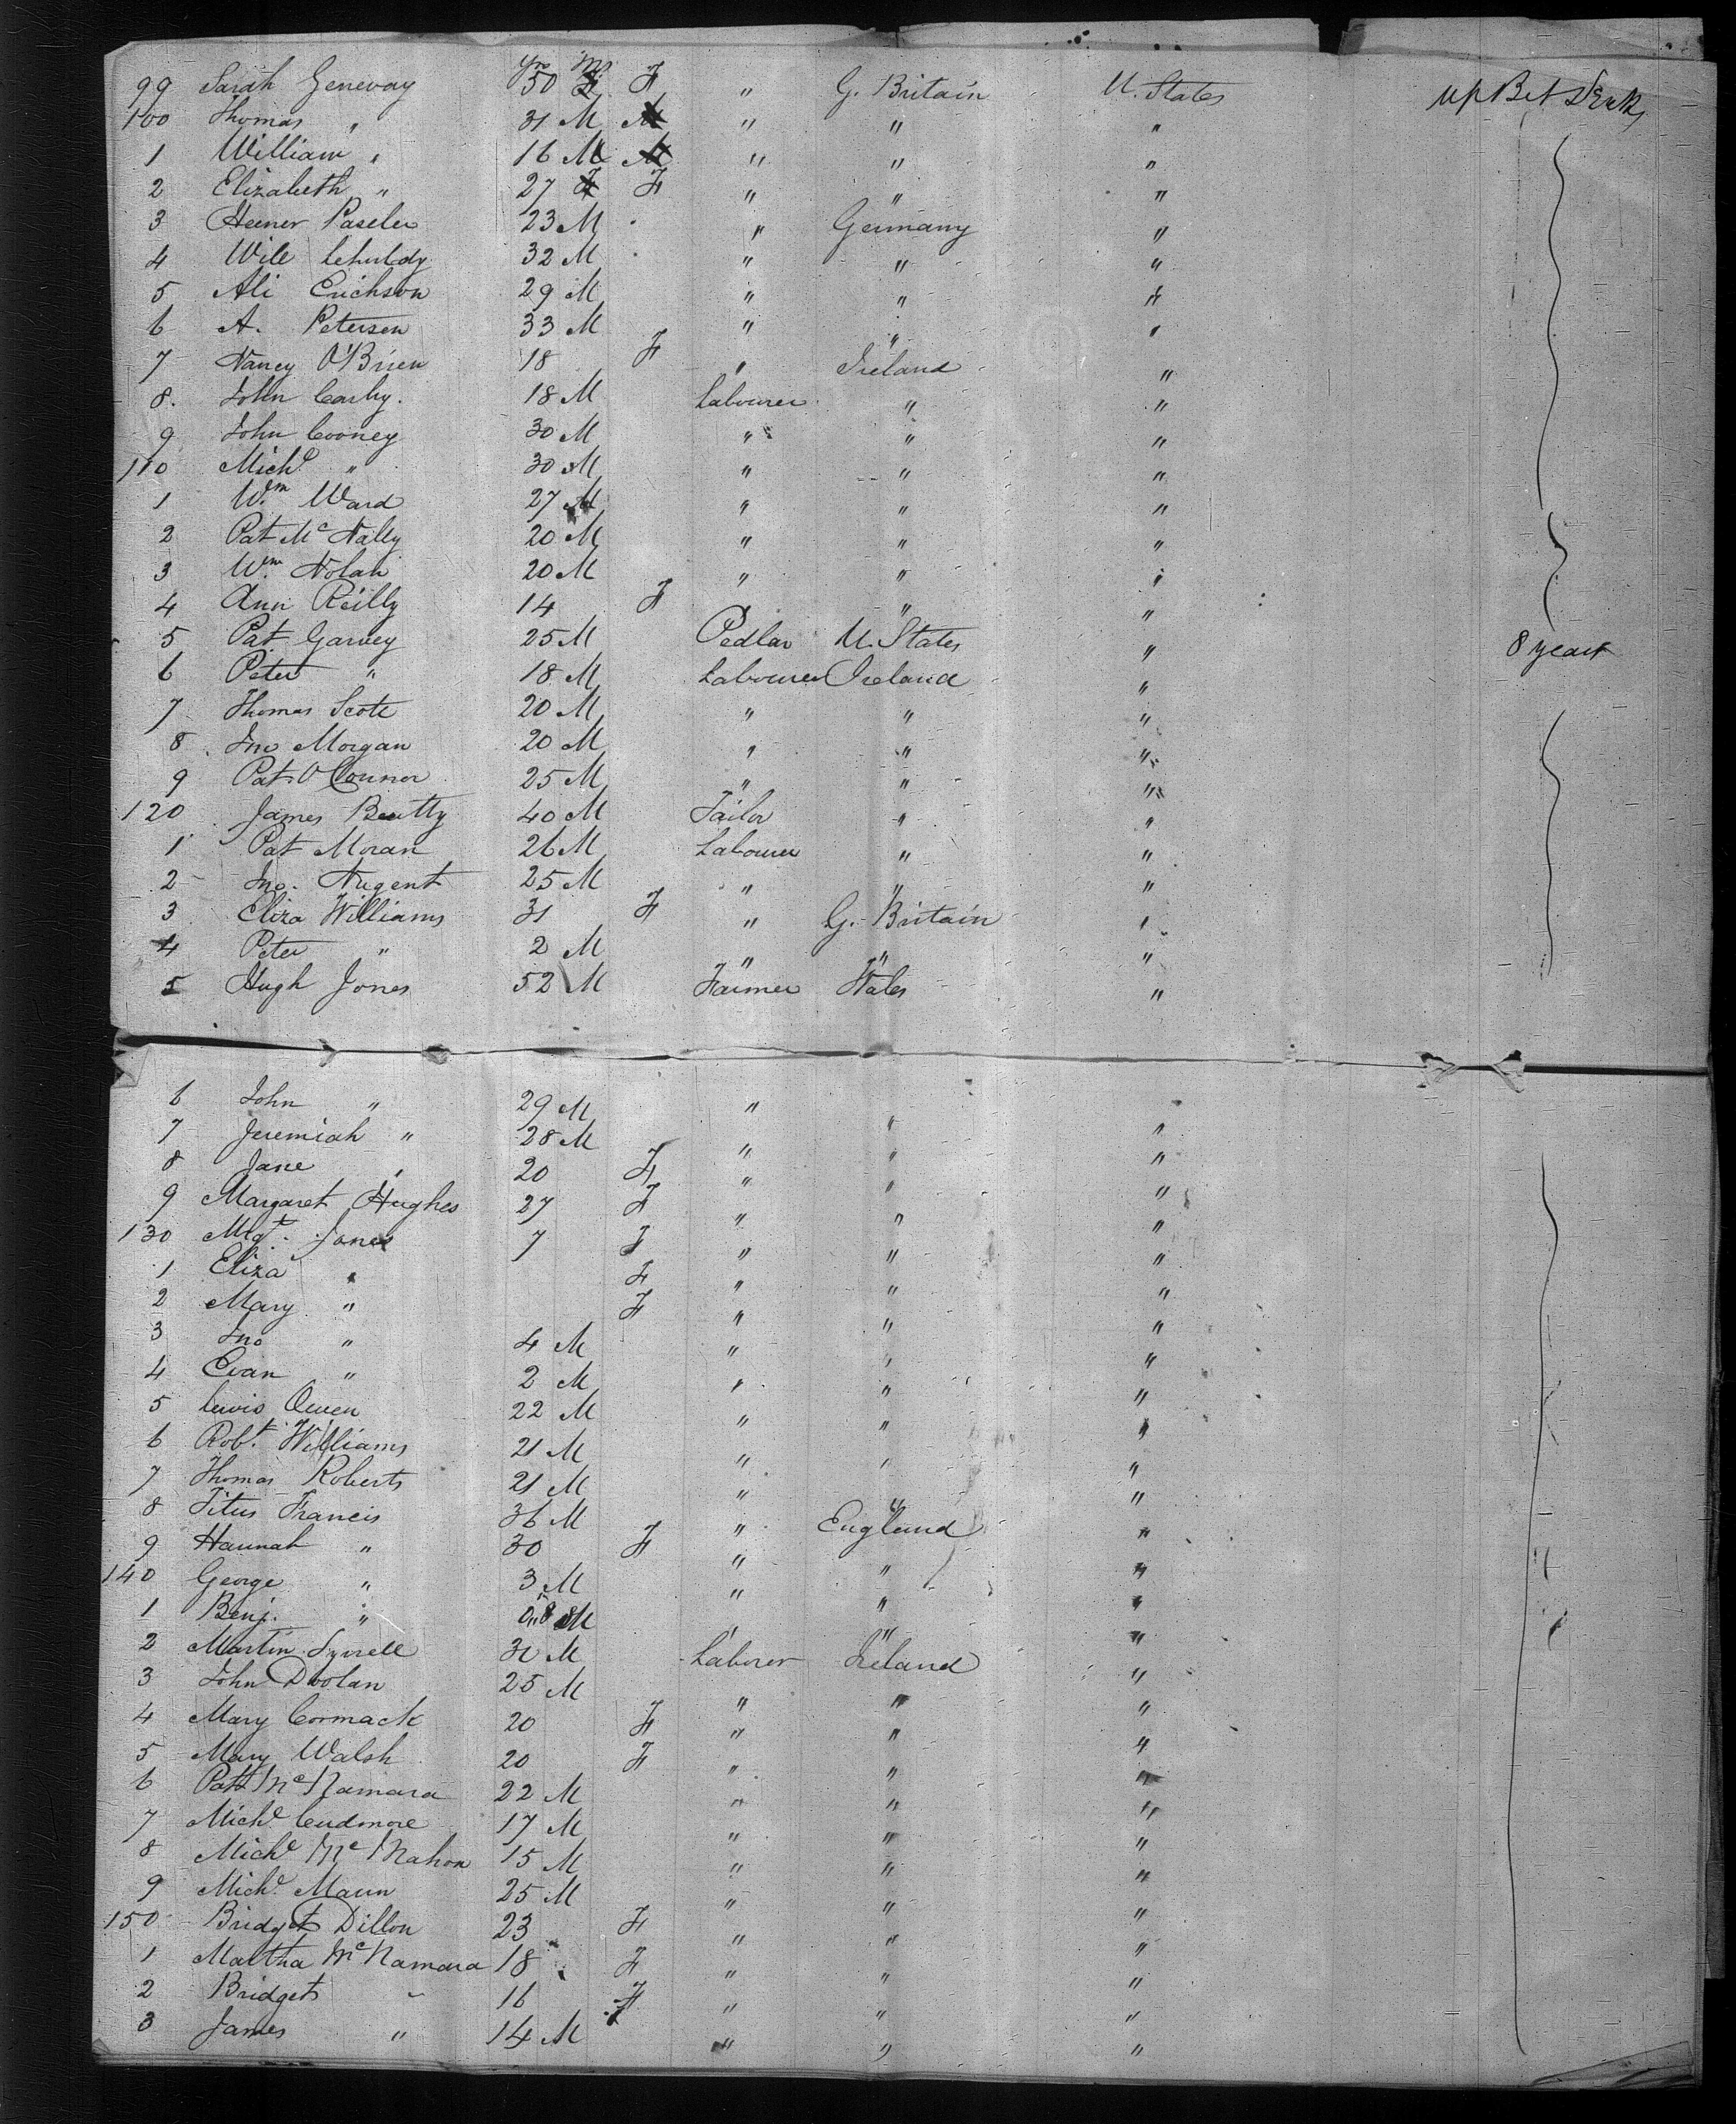 Yrs M
99 Sarah Genevay 50 F " G. Britain U. States up Bet Deck
100 Thomas " 31 M " " "
1 William " 16 M " " "
2 Elizabeth " 27 F " " "
3 Heiner Paseler 23 M " Germany "
4 Will Schuldy 32 M " " "
5 Ali Erichson 29 M " " "
6 A. Petersen 33 M " " "
7 Nancy O'Brien 18 F " Ireland "
8. John Carby. 18 M Labourer " "
9 John Cooney 30 M " " "
110 Michl " 30 M " " "
1 Wm Ward 27 M " " "
2 Pat McNally 20 M " " "
3 Wm Nolan 20 M " " "
4 Ann Reilly 14 F " "
5 Pat Garvey 25 M Pedlar U. States " 8 years
6 Peter " 18 M Labourer Ireland "
7 Thomas Scott 20 M " " "
8 Jno Morgan 20 M " " "
9 Pat O'Connor 25 M " " "
120 James Beutty 40 M Tailor " "
1 Pat Moran 26 M Labourer " "
2 Jno. Nugent 25 M " " "
3 Eliza Williams 31 F " G. Britain "
4 Peter " 2 M " " "
5 Hugh Jones 52 M Farmer Wales "
6 John " 29 M " " "
7 Jeremiah " 28 M " " "
8 Jane " 20 F " " "
9 Margaret Hughes 27 F " " "
130 Mgt. Jones 7 F " " "
1 Eliza " F " " "
2 Mary " F " " "
3 Jno " 4 M " " "
4 Evan " 2 M " " "
5 Lewis Owen 22 M " " "
6 Robt. Williams 21 M " " "
7 Thomas Roberts 21 M " " "
8 Titus Francis 36 M " England "
9 Hannah " 30 F " " "
140 George " 3 M " " "
1 Benj. " 0"8 M " " "
2 Martin Tyrrell 30 M Laborer Ireland "
3 John Doolan 25 M " " "
4 Mary Cormack 20 F " " "
5 Mary Walsh 20 F " " "
6 Patt McNamara 22 M " " "
7 Michl Cudmore 17 M " " "
8 Michl McMahon 15 M " " "
9 Michl. Maun 25 M " " "
150 Bridget Dillon 23 F " " "
1 Martha McNamara 18 F " " "
2 Bridget " 16 F " " "
3 James " 14 M " " "